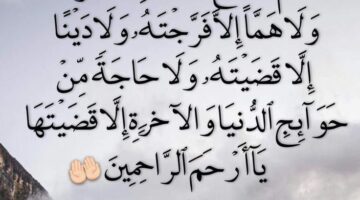 وَلَا هَمًّا إِلَّا فَرَّجْتَهُ, وَلَا دَيْنًا
إِلَّا قَضَيْتَهُ, وَلَا حَاجَةً مِّنْ
حَوَآئِجِ ٱلدُّنْيَا وَالآخِرَةِ إِلَّا قَضَيْتَهَا
يَآ أَرْحَمَ ٱلرَّاحِمِينَ 🤲🏻